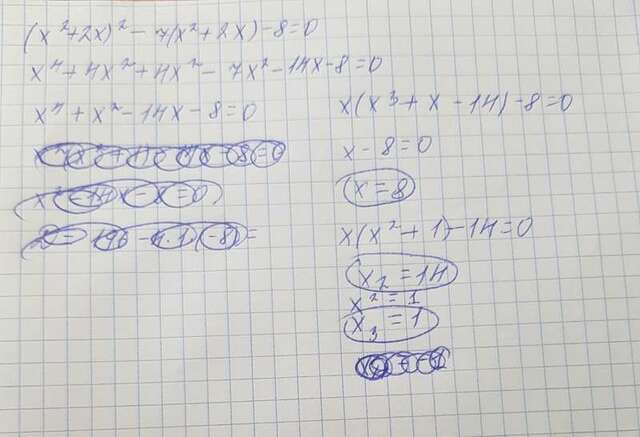 (x²+2x)² - 7(x²+2x) - 8 = 0
x⁴ + 4x² + 4x² - 7x² - 14x - 8 = 0
x⁴ + x² - 14x - 8 = 0
x(x³ + x - 14) - 8 = 0
x - 8 = 0
x = 8
x(x² + 1) - 14 = 0
x₂ = 14
x² = 1
x₃ = 1